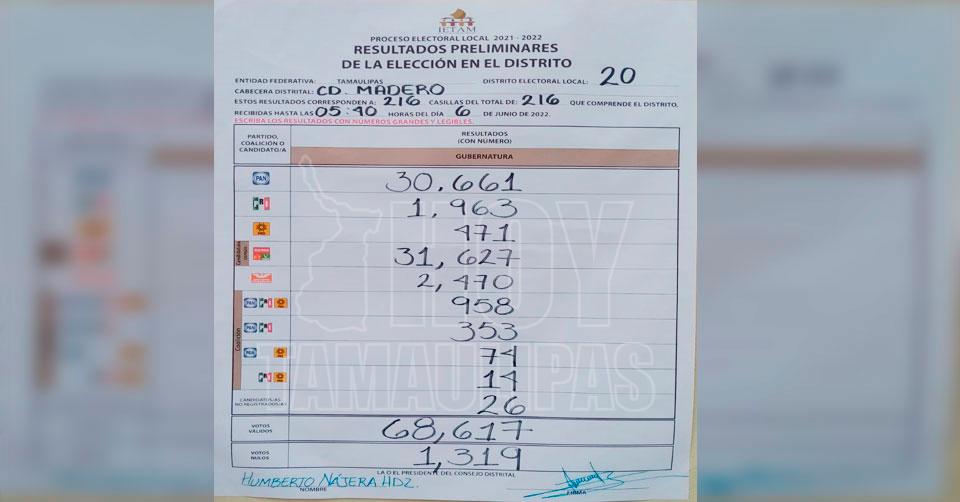 IETAM
PROCESO ELECTORAL LOCAL 2021 - 2022
RESULTADOS PRELIMINARES
DE LA ELECCIÓN EN EL DISTRITO
ENTIDAD FEDERATIVA: TAMAULIPAS DISTRITO ELECTORAL LOCAL: 20
CABECERA DISTRITAL: CD. MADERO
ESTOS RESULTADOS CORRESPONDEN A: 216 CASILLAS DEL TOTAL DE: 216 QUE COMPRENDE EL DISTRITO,
RECIBIDAS HASTA LAS 05:40 HORAS DEL DÍA 6 DE JUNIO DE 2022.
ESCRIBA LOS RESULTADOS CON NÚMEROS GRANDES Y LEGIBLES.
PARTIDO, COALICIÓN O CANDIDATO/A
RESULTADOS
(CON NÚMERO)
GUBERNATURA
PAN 30,661
PRI 1,963
PRD 471
31,627
2,470
Coalición
PAN PRI PRD 958
PAN PRI 353
PAN PRD 74
PRI PRD 14
CANDIDATOS/AS NO REGISTRADOS/AS 26
VOTOS VÁLIDOS 68,617
VOTOS NULOS 1,319
LA O EL PRESIDENTE DEL CONSEJO DISTRITAL
HUMBERTO NÁJERA HDZ.
NOMBRE FIRMA
HOY
TAMAULIPAS